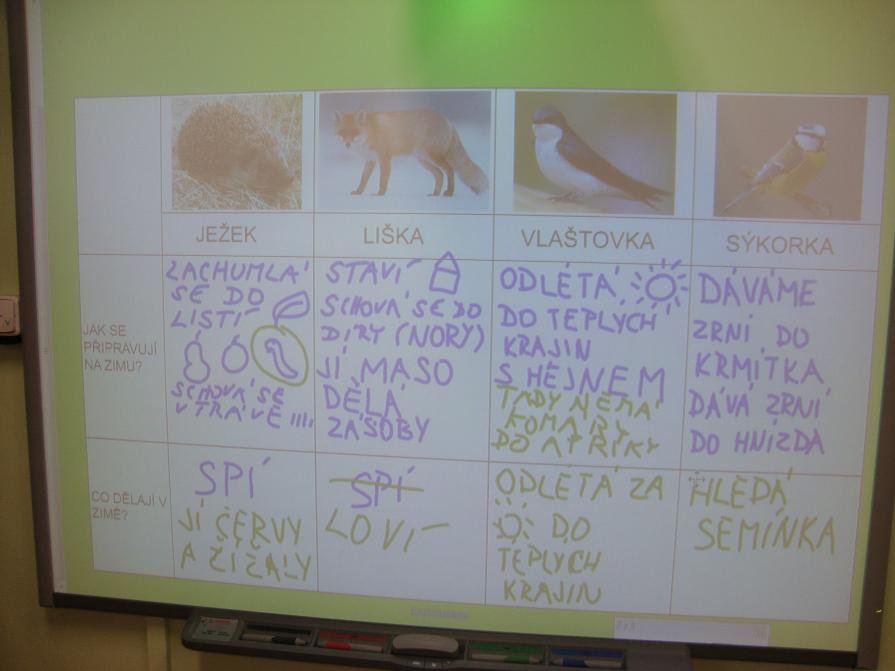 JEŽEK
LIŠKA
VLAŠTOVKA
SÝKORKA
JAK SE
PŘIPRAVUJÍ
NA ZIMU?
ZACHUMLÁ
SE DO
LISTÍ
SCHOVÁ SE
V TRÁVĚ
STAVÍ
SCHOVÁ SE DO
DÍRY (NORY)
JÍ MASO
DĚLÁ
ZÁSOBY
ODLÉTÁ
DO TEPLYCH
KRAJIN
S HEJNEM
TADY NEMÁ
KOMÁRY
DO AFRIKY
DÁVÁME
ZRNÍ DO
KRMÍTKA
DÁVÁ ZRNÍ
DO HNÍZDA
CO DĚLAJÍ V
ZIMĚ?
SPÍ
JÍ ČERVY
A ŽÍŽALY
SPÍ
LOVÍ
ODLÉTÁ ZA
DO
TEPLYCH
KRAJIN
HLEDÁ
SEMÍNKA